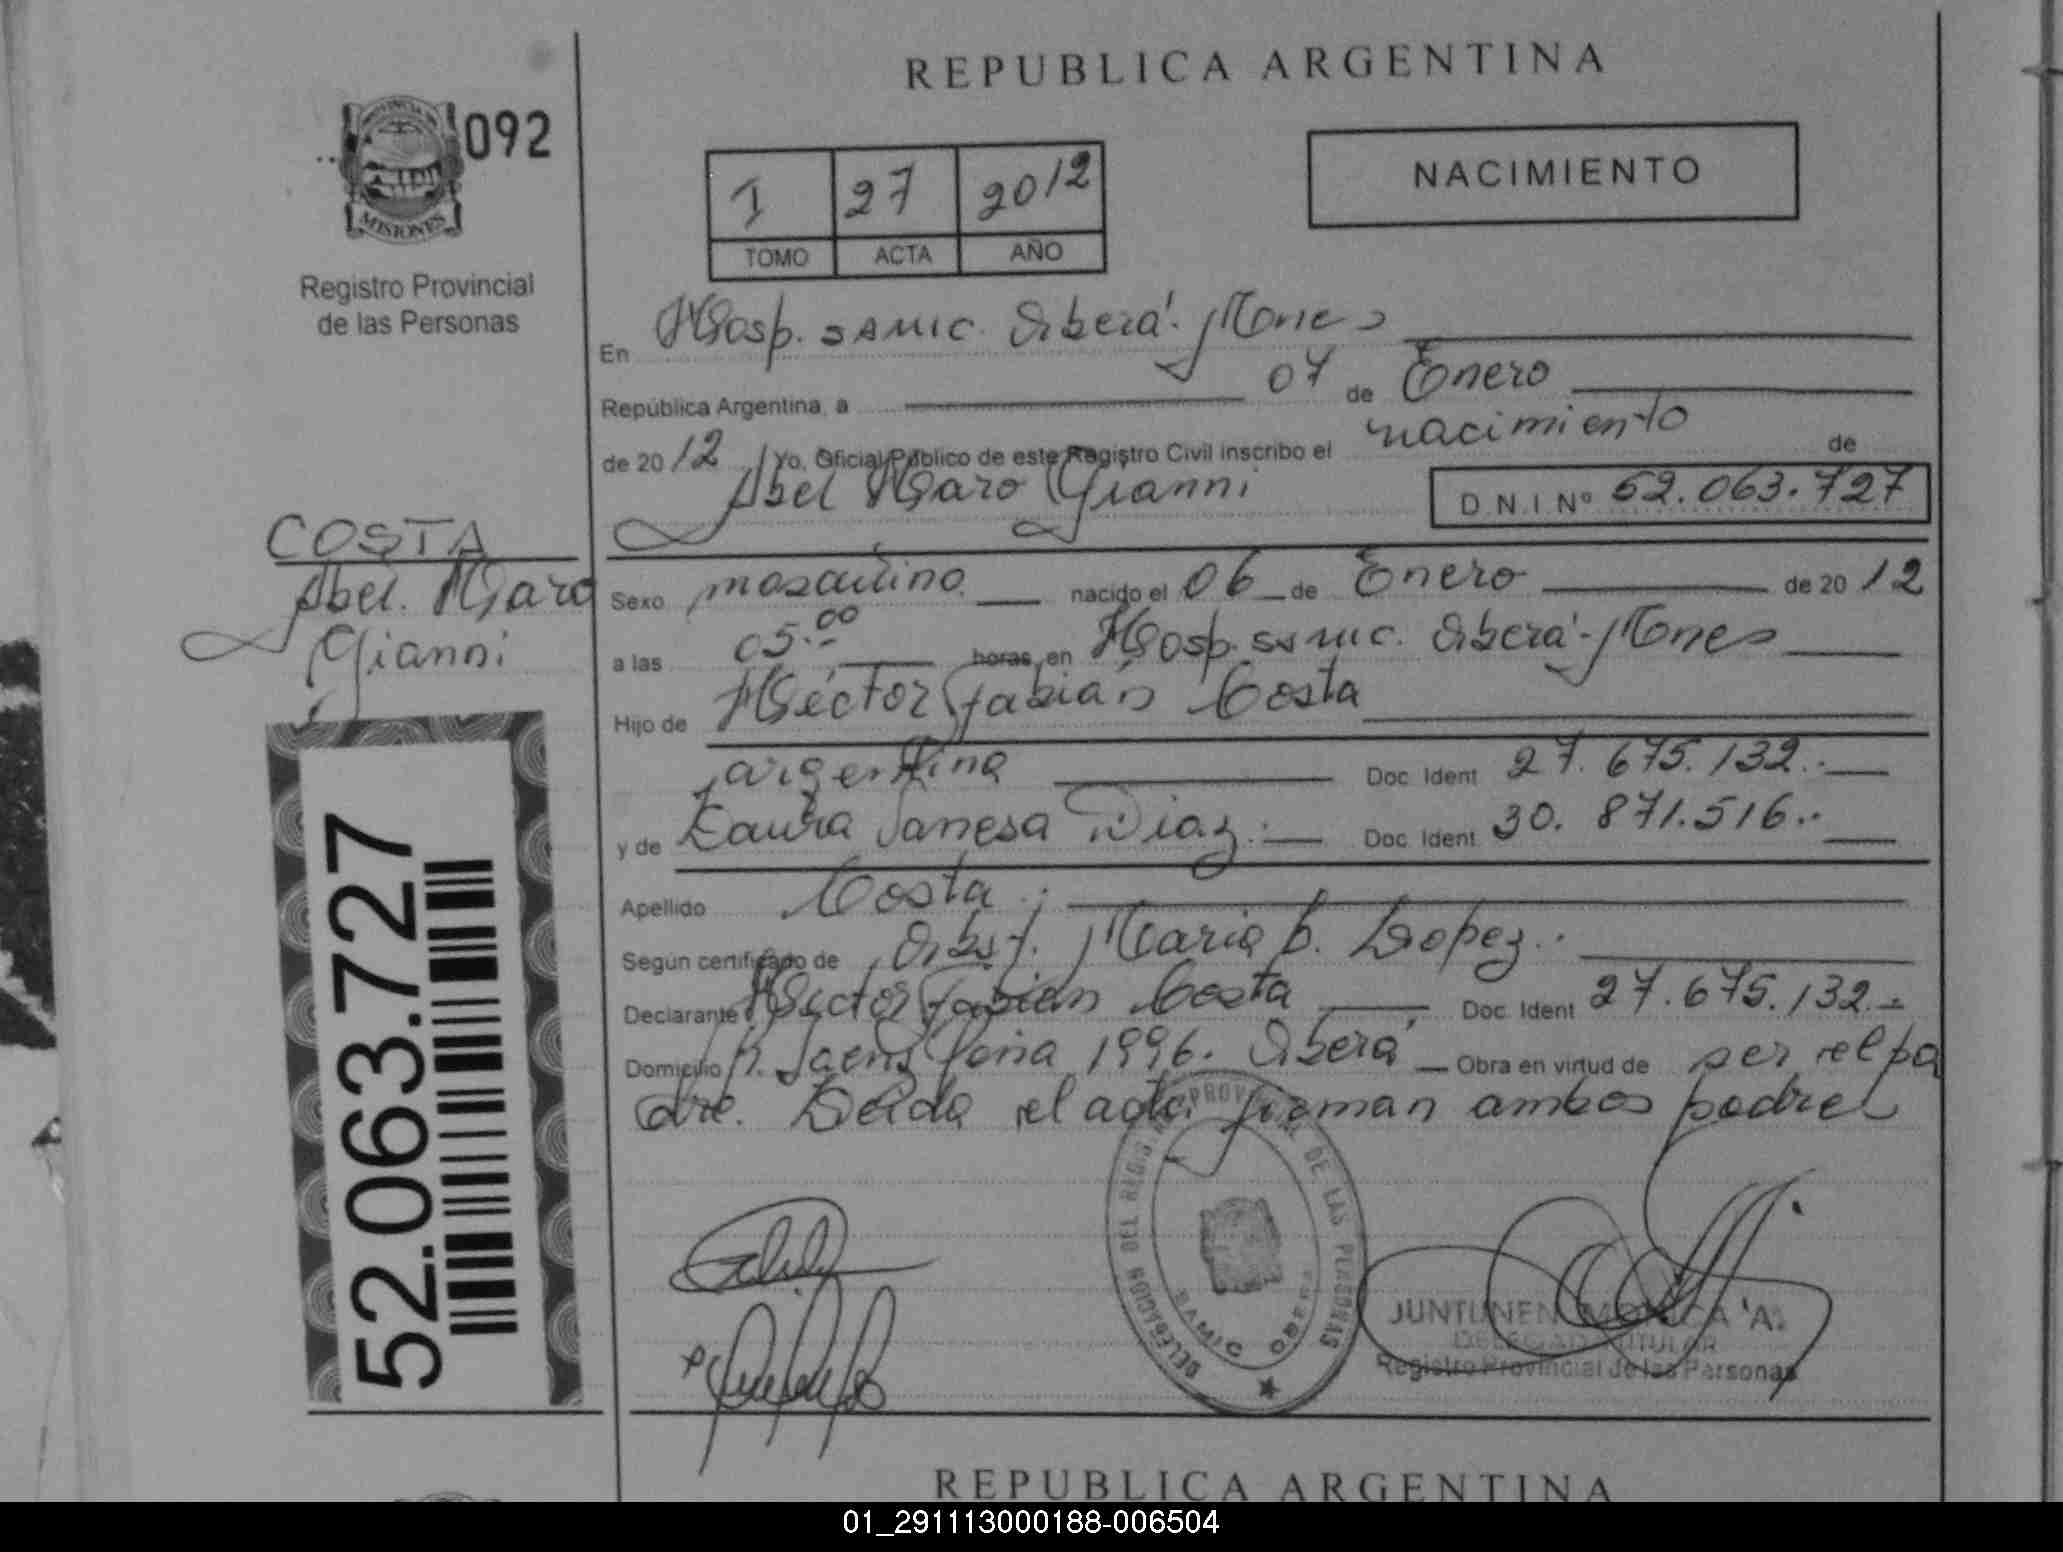 REPUBLICA ARGENTINA
PROVINCIA DE
MISIONES
092
Registro Provincial
de las Personas
1 27 2012
TOMO ACTA AÑO
NACIMIENTO
En Hosp. SAMIC. Oberá. Mones
República Argentina, a 07 de Enero
de 2012 Yo, Oficial Público de este Registro Civil inscribo el nacimiento de
Abel Haro Gianni
D.N.I. Nº 52.063.727
COSTA
Abel. Haro
Gianni
Sexo masculino nacido el 06 de Enero de 2012
a las 05.00 horas, en Hosp. SAMIC. Oberá - Mones
Hijo de Héctor Fabián Costa
argentina Doc. Ident. 27.675.132.-
y de Laura Vanesa Diaz. Doc. Ident. 30.871.516.-
Apellido Costa.
Según certificado de Obst. Maria B. Lopez.
Declarante Héctor Fabián Costa Doc. Ident. 27.675.132.-
Domicilio R. Saenz Peña 1996. Oberá Obra en virtud de ser el pa
dre. Leida el acta firman ambos padres
52.063.727
DELEGACION DEL REGISTRO PROVINCIAL DE LAS PERSONAS
SAMIC OBERA
JUNTUNEN MONICA "A."
DELEGADA TITULAR
Registro Provincial de las Personas
REPUBLICA ARGENTINA
01_291113000188-006504